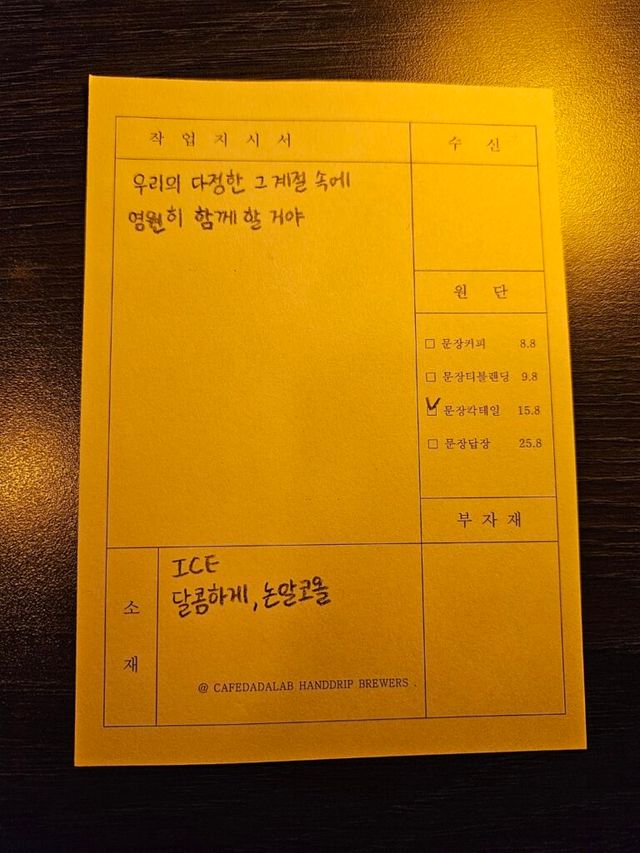 작업지시서
수신
우리의 다정한 그 계절 속에
영원히 함께 할 거야
원단
□ 문장커피 8.8
□ 문장티블랜딩 9.8
☑ 문장칵테일 15.8
□ 문장답장 25.8
부자재
소재
ICE
달콤하게, 논알코올
@ CAFEDADALAB HANDDRIP BREWERS .